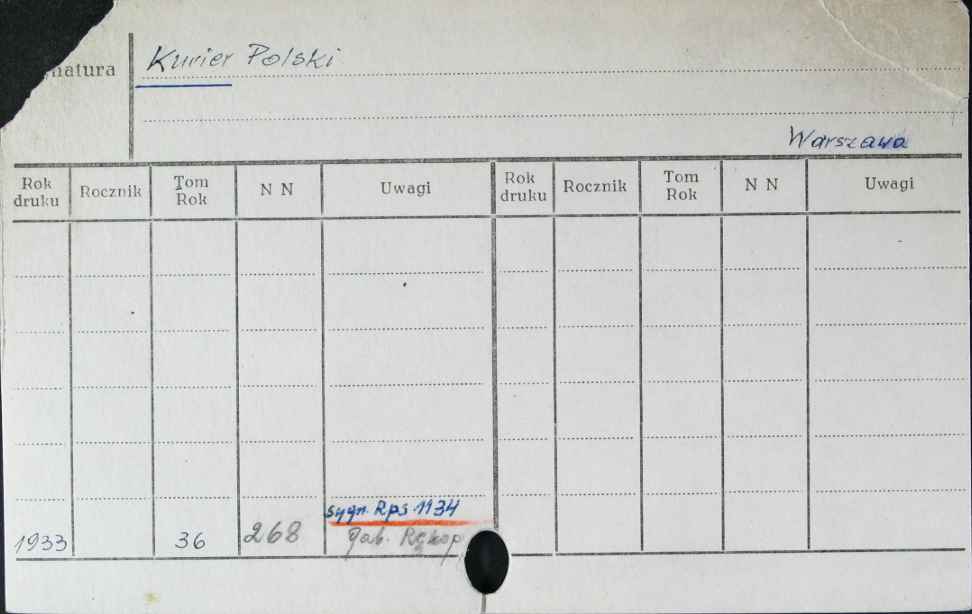 Kurier Polski
natura
Warszawa
Rok druku Rocznik Tom Rok N N Uwagi Rok druku Rocznik Tom Rok N N Uwagi
sygn. Rps 1134
1933 36 268 gab. Rękop